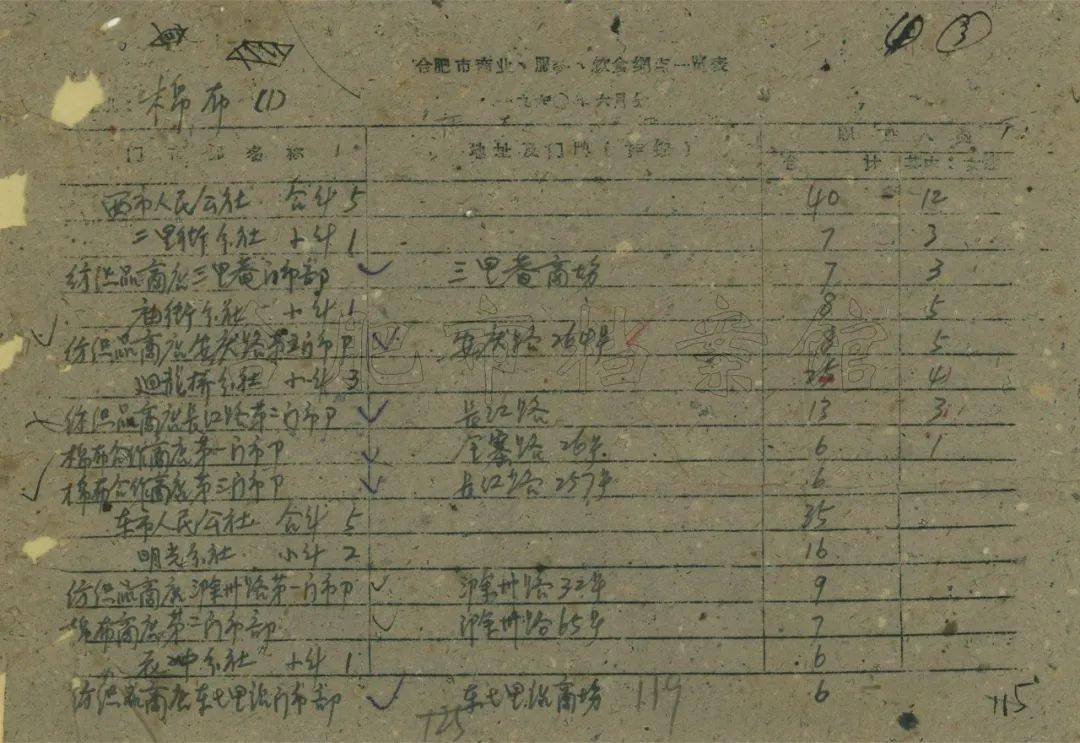 ③
合肥市商业、服务、饮食网点一览表
一九六〇年六月
棉布 (1)
门市部名称 地址及门牌(详细) 职工人员
合计 其中:女职
西市人民公社 合计 5 40 12
三里街分社 小计 1 7 3
纺织品商店三里菴门市部 ✓ 三里菴商场 7 3
庙街分社 小计 1 8 5
纺织品商店安庆路第五门市卩 ✓ 安庆路264号 8 5
迴龙桥分社 小计 3 25 4
纺织品商店长江路第二门市卩 ✓ 长江路 13 3
棉布合作商店第一门市卩 ✓ 金寨路26号 6 1
棉布合作商店第三门市卩 ✓ 长江路257号 6
东市人民公社 合计 5 35
明光分社 小计 2 16
纺织品商店滁州路第一门市卩 ✓ 滁州路32号 9
棉布商店第二门市部 ✓ 滁州路65号 7
分社 小计 1 6
纺织品商店东七里站门市部 ✓ 东七里站商场 6
125 119 115
合肥市档案馆